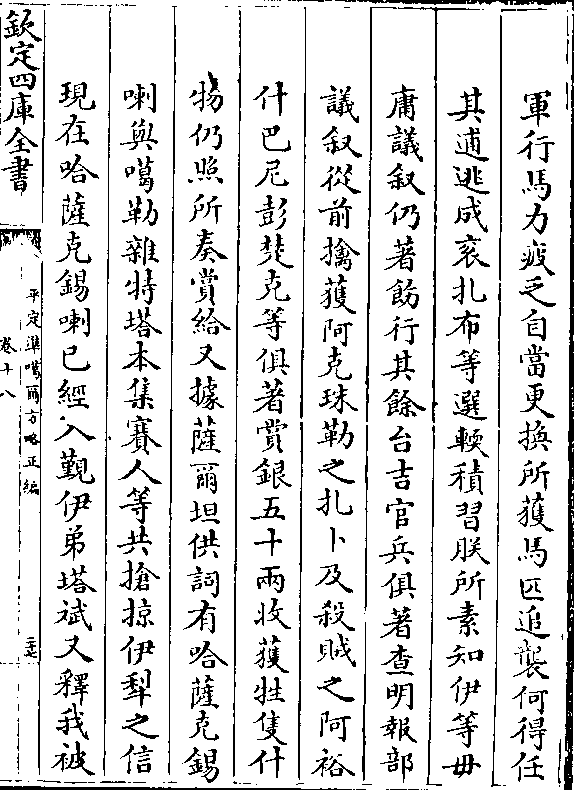 軍行馬力疲乏自當更換所獲馬匹追襲何得任
其逋逃成衮扎布等選輭積習朕所素知伊等毋
庸議叙仍著飭行其餘台吉官兵俱著查明報部
議叙從前擒獲阿克珠勒之扎卜及殺賊之阿裕
什巴尼彭楚克等俱著賞銀五十兩收獲牲隻什
物仍照所奏賞給又據薩爾坦供詞有哈薩克錫
喇與噶勒雜特塔本集賽人等共搶掠伊犁之信
現在哈薩克錫喇已經入覲伊弟塔斌又釋我被
欽定四庫全書
平定準噶爾方略正編
卷十八